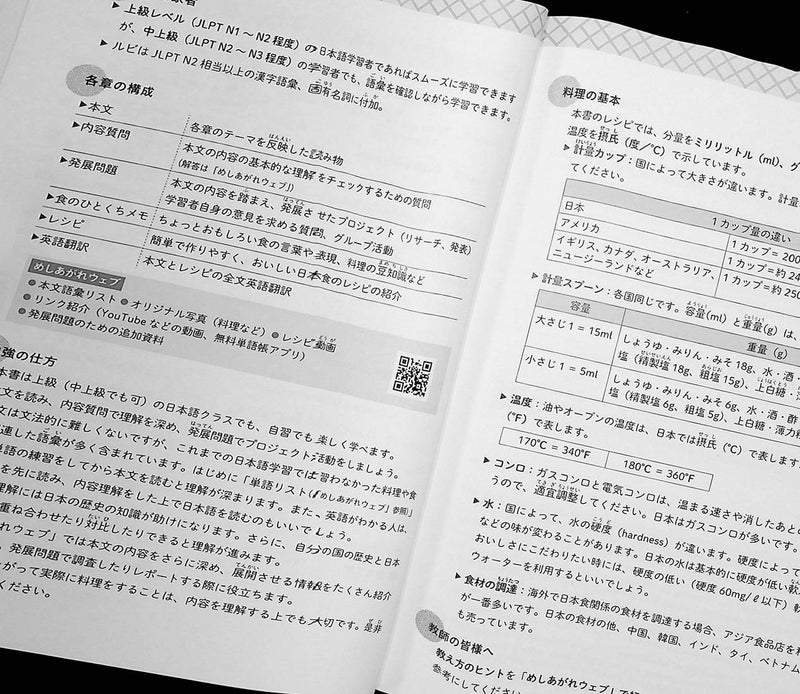 ▶上級レベル（JLPT N1〜N2程度）の日本語学習者であればスムーズに学習できます
が、中上級（JLPT N2〜N3程度）の学習者でも、語彙を確認しながら学習できます。
▶ルビはJLPT N2相当以上の漢字語彙、固有名詞に付加。
各章の構成
▶本文
各章のテーマを反映した読み物
▶内容質問
本文の内容の基本的な理解をチェックするための質問
（解答は「めしあがれウェブ」）
▶発展問題
本文の内容を踏まえ、発展させたプロジェクト（リサーチ、発表）
学習者自身の意見を求める質問、グループ活動
▶食のひとくちメモ
ちょっとおもしろい食の言葉や表現、料理の豆知識など
▶レシピ
簡単で作りやすく、おいしい日本食のレシピの紹介
▶英語翻訳
本文とレシピの全文英語翻訳
めしあがれウェブ
●本文語彙リスト ●オリジナル写真（料理など） ●レシピ動画
●リンク紹介（YouTubeなどの動画、無料単語帳アプリ）
●発展問題のための追加資料
強の仕方
本書は上級（中上級でも可）の日本語クラスでも、自習でも楽しく学べます。
文を読み、内容質問で理解を深め、発展問題でプロジェクト活動をしましょう。
文は文法的に難しくないですが、これまでの日本語学習では習わなかった料理や食
連した語彙が多く含まれています。はじめに「単語リスト（「めしあがれウェブ」参照）」
単語の練習をしてから本文を読むと理解が深まります。また、英語がわかる人は、
を先に読み、内容理解をした上で日本語を読むのもいいでしょう。
理解には日本の歴史の知識が助けになります。さらに、自分の国の歴史と日本
重ね合わせたり対比したりできると理解が進みます。
れウェブ」では本文の内容をさらに深め、展開させる情報をたくさん紹介
。発展問題で調査したりレポートする際に役立ちます。
がって実際に料理をすることは、内容を理解する上でも大切です。是非
ください。
料理の基本
本書のレシピでは、分量をミリリットル（ml）、グ
温度を摂氏（度／℃）で示しています。
▶計量カップ：国によって大きさが違います。計量
てください。
1カップ量の違い
日本
1カップ＝200
アメリカ
1カップ＝約24
イギリス、カナダ、オーストラリア、
ニュージーランドなど
1カップ＝約250
▶計量スプーン：各国同じです。容量(ml)と重量(g)は、
容量
重量（g）
大さじ1＝15ml
しょうゆ・みりん・みそ18g、水・酒・
塩（精製塩18g、粗塩15g）、上白糖・
小さじ1＝5ml
しょうゆ・みりん・みそ6g、水・酒・酢
塩（精製塩6g、粗塩5g）、上白糖・薄力粉
▶温度：油やオーブンの温度は、日本では摂氏（℃）で表しま
（℉）で表します。
170℃＝340℉
180℃＝360℉
▶コンロ：ガスコンロと電気コンロは、温まる速さや消したあとの
うので、適宜調整してください。日本はガスコンロが多いです。
▶水：国によって、水の硬度（hardness）が違います。硬度によって
などの味が変わることがあります。日本の水は基本的に硬度が低い軟
おいしさにこだわりたい時には、硬度の低い（硬度60mg/ℓ以下）軟
ウォーターを利用するといいでしょう。
▶食材の調達：海外で日本食関係の食材を調達する場合、アジア食品店を利
が一番多いです。日本の食材の他、中国、韓国、インド、タイ、ベトナム
も売っています。
教師の皆様へ
教え方のヒントを「めしあがれウェブ」で
参考にしてください